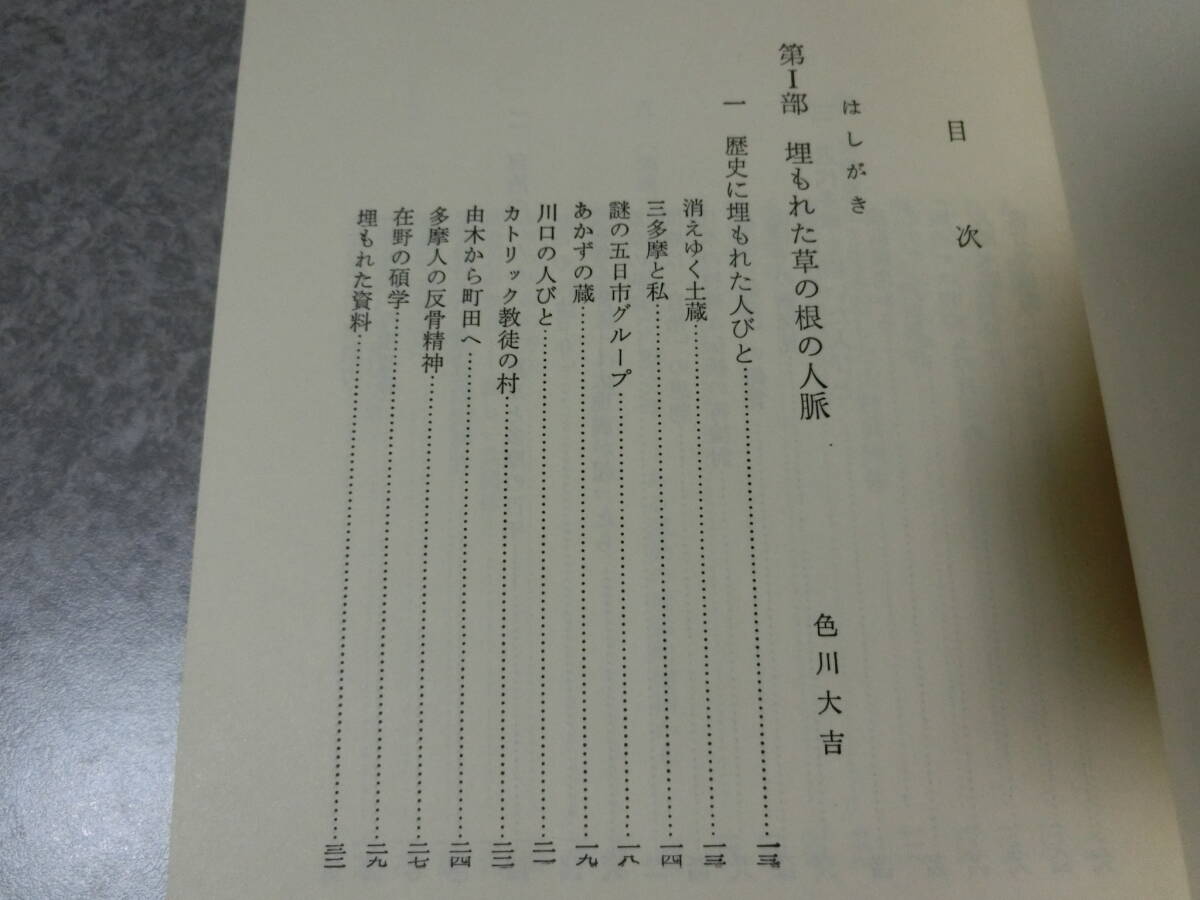 目次
はしがき
第Ⅰ部 埋もれた草の根の人脈 色川大吉
一 歴史に埋もれた人びと……一三
消えゆく土蔵……一三
三多摩と私……一四
謎の五日市グループ……一八
あかずの蔵……一九
川口の人びと……二一
カトリック教徒の村……二二
由木から町田へ……二四
多摩人の反骨精神……二七
在野の碩学……二九
埋もれた資料……三二